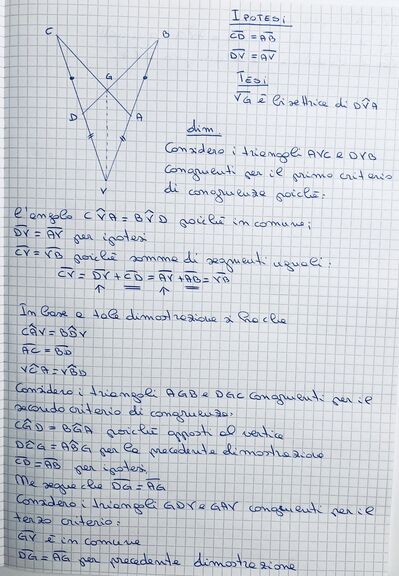 IPOTESI
C B
CD = AB
DV = AV
TESI
G
VG è bisettrice di DV̂A
D A
dim.
V
Considero i triangoli AVC e DVB
congruenti per il primo criterio
di congruenza poichè:
l'angolo CV̂A = BV̂D poichè in comune;
DV = AV per ipotesi
CV = VB poichè somma di segmenti uguali:
CV = DV + CD = AV + AB = VB
In base a tale dimostrazione si ha che
CÂV = BD̂V
AC = BD
VĈA = VB̂D
Considero i triangoli AGB e DGC congruenti per il
secondo criterio di congruenza:
CĜD = BĜA poichè opposti al vertice
DĈG = AB̂G per la precedente dimostrazione
CD = AB per ipotesi
Ne segue che DG = AG
Considero i triangoli GDV e GAV congruenti per il
terzo criterio:
GV è in comune
DG = AG per precedente dimostrazione